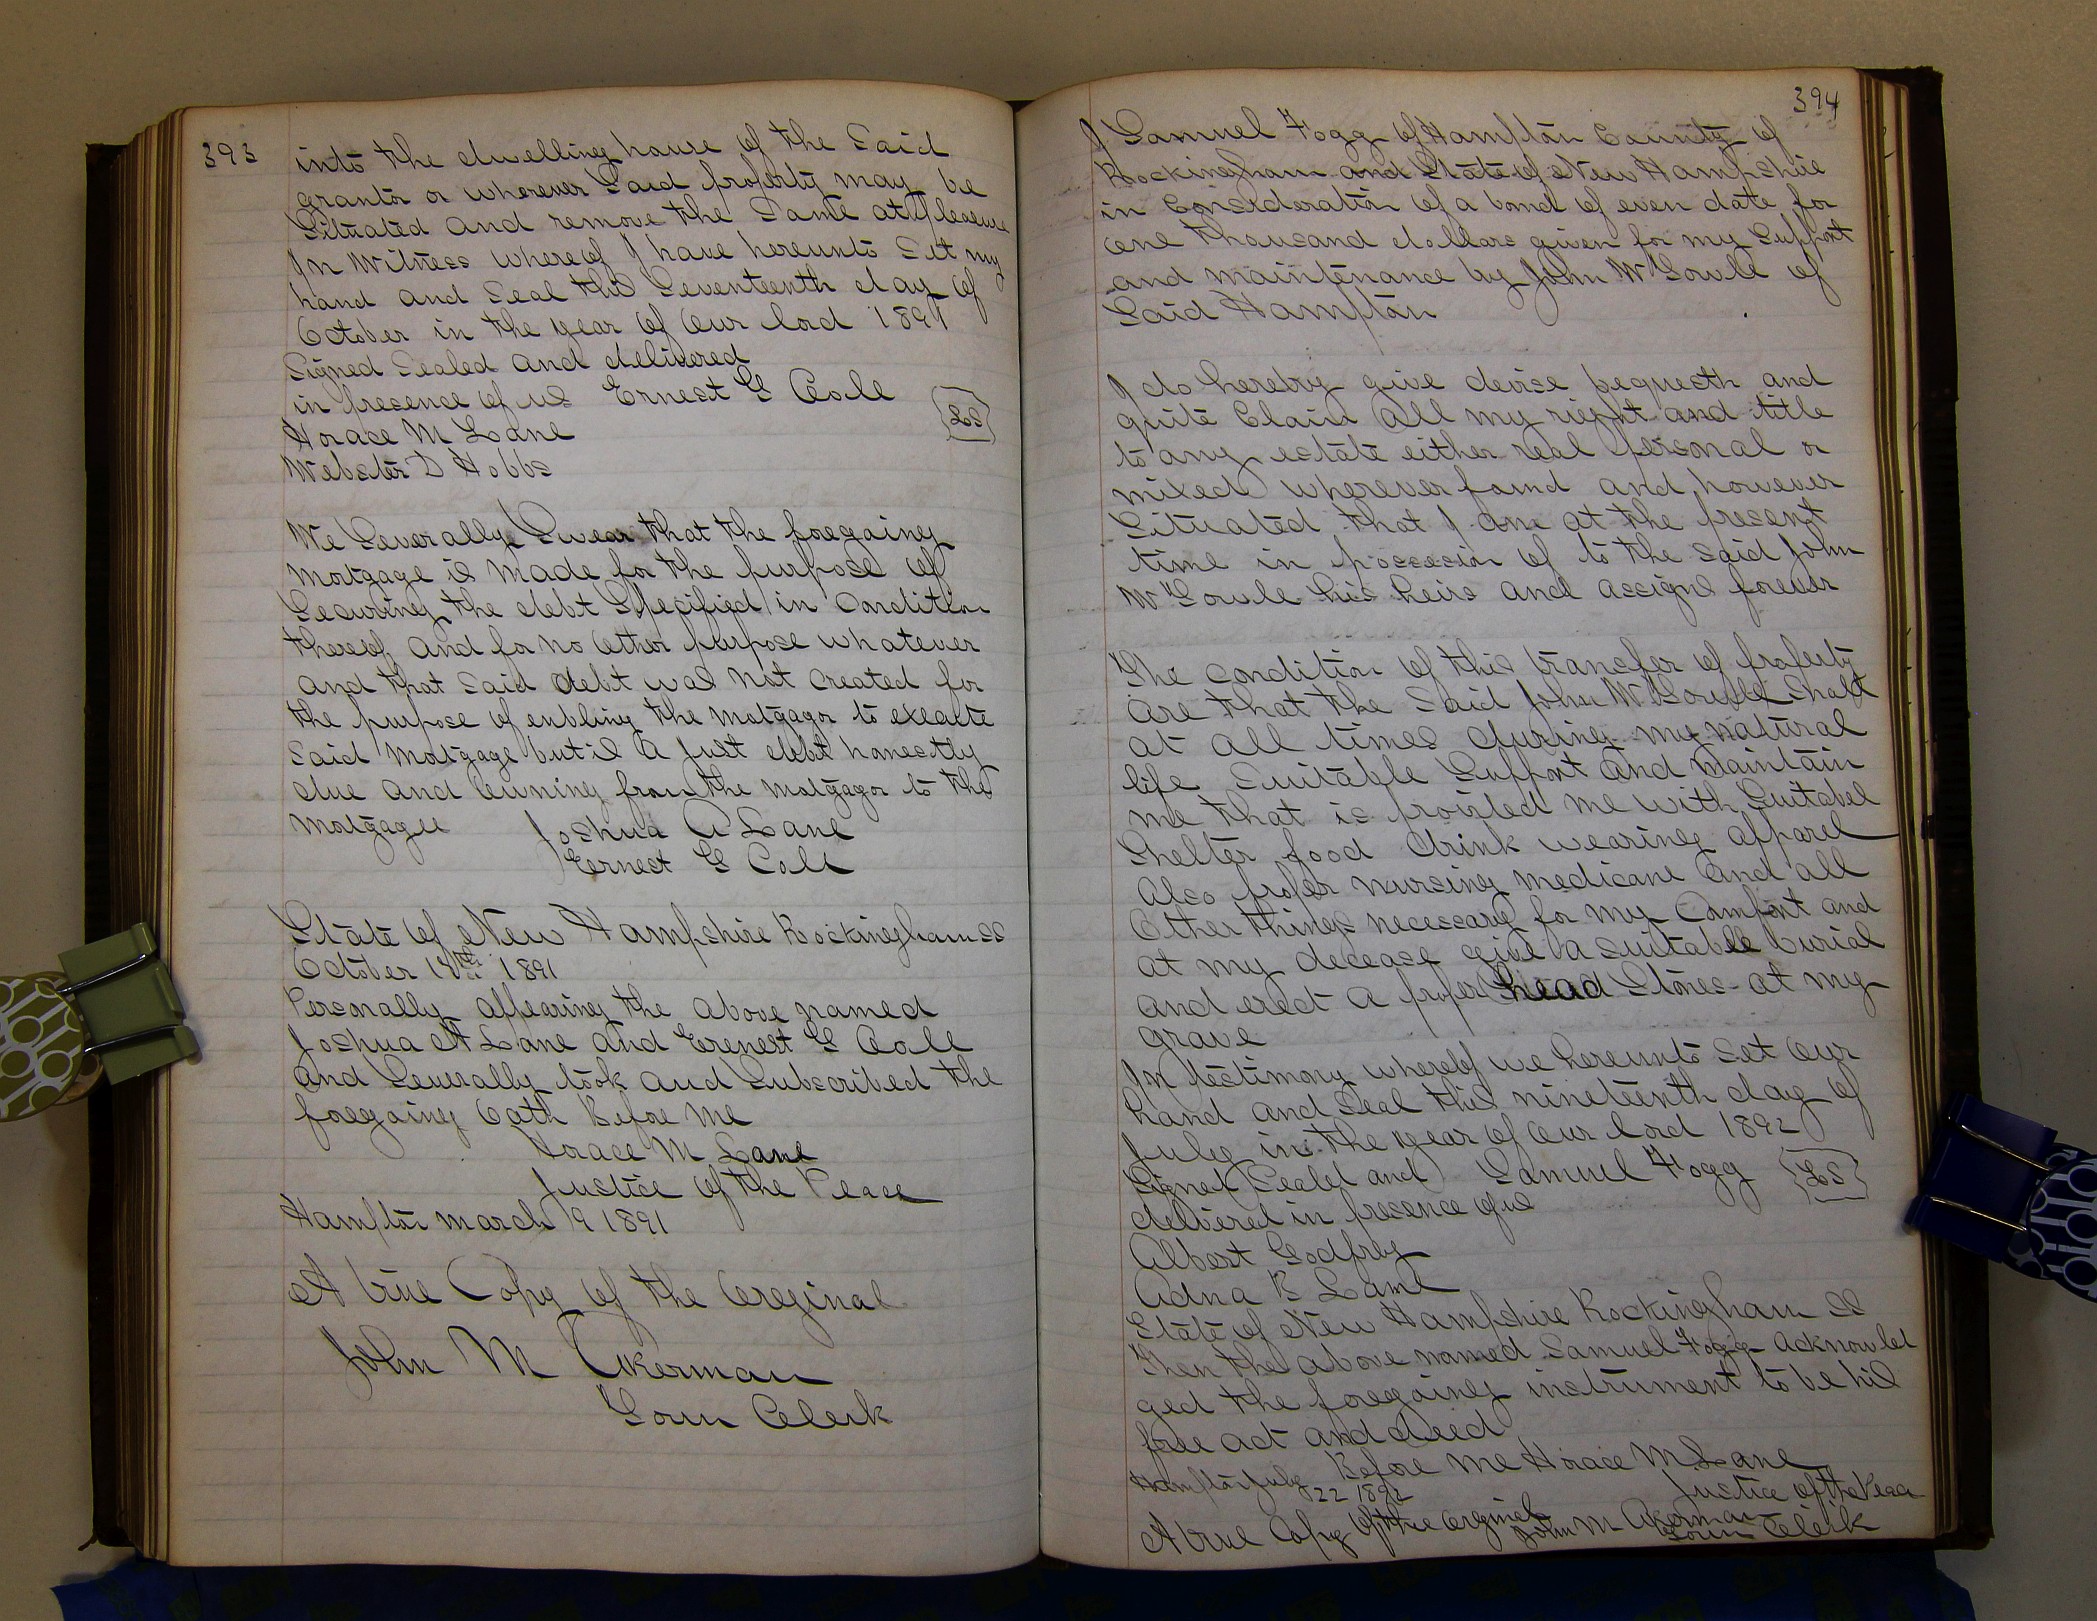 393
into the dwelling house of the Said
grantor or wherever Said property may be
Situated and remove the Same at pleasure
In Witness whereof I have hereunto Set my
hand and Seal this Seventeenth day of
October in the year of Our lord 1891
Signed Sealed and delivered
in presence of us Ernest G Cole
Horace M Lane LS
Webster D Hobbs
We Severally Swear that the foregoing
mortgage is made for the purpose of
Securing the debt Specified in Condition
thereof and for no Other purpose whatever
and that Said debt was not Created for
the purpose of enbling the mortgagor to execute
Said Mortgage but is a Just debt honestly
due and Owning from the mortgagor to the
mortgagee Joshua A Lane
Ernest G Cole
State of New Hampshire Rockingham SS
October 1891
Personally appearing the above named
Joshua A Lane and Erenest G Cole
and Severally took and Subscribed the
foregoing Oath Before Me
Horace M Lane
Justice of the Peace
Hampton march 19 1891
A true Copy of the Oreginal
John M Akerman
Town Clerk
394
I Samuel Fogg of Hampton County of
Rockingham and State of New Hampshire
in Consideration of a bond of even date for
one thousand dollars given for my Support
and maintenance by John W Towle of
Said Hampton
I do hereby give devise bequesth and
quite Claim all my right and title
to any estate either real personal or
mixed wherever found and however
Situated that I am at the present
time in possesion of to the said John
W Towle his heirs and assigns forever
The condition of this transfer of property
are that the Said John W Towle Shall
at all times during my natural
life Suitable Support and Maintain
me that is provided me with Suitabel
Shelter food drink wearing apparel
Also proper nursing medicane and all
Other things necessary for my Comfort and
at my decease give a suitable burial
and erect a proper head Stones at my
grave
In testimony whereof we hereunto Set Our
hand and Seal this nineteenth day of
July in the year of Our lord 1892
Signed Sealed and Samuel Fogg LS
delivered in presence of us
Albert Godfrey
Adna B Lane
State of New Hampshire Rockingham SS
Then the above named Samuel Fogg acknowled
ged the foregoing instrument to be his
free act and deed
Before Me Horace M Lane
Hampton July 22 1892 Justice of the Peace
A true Copy of the Oreginal John M Akerman
Town Clerk